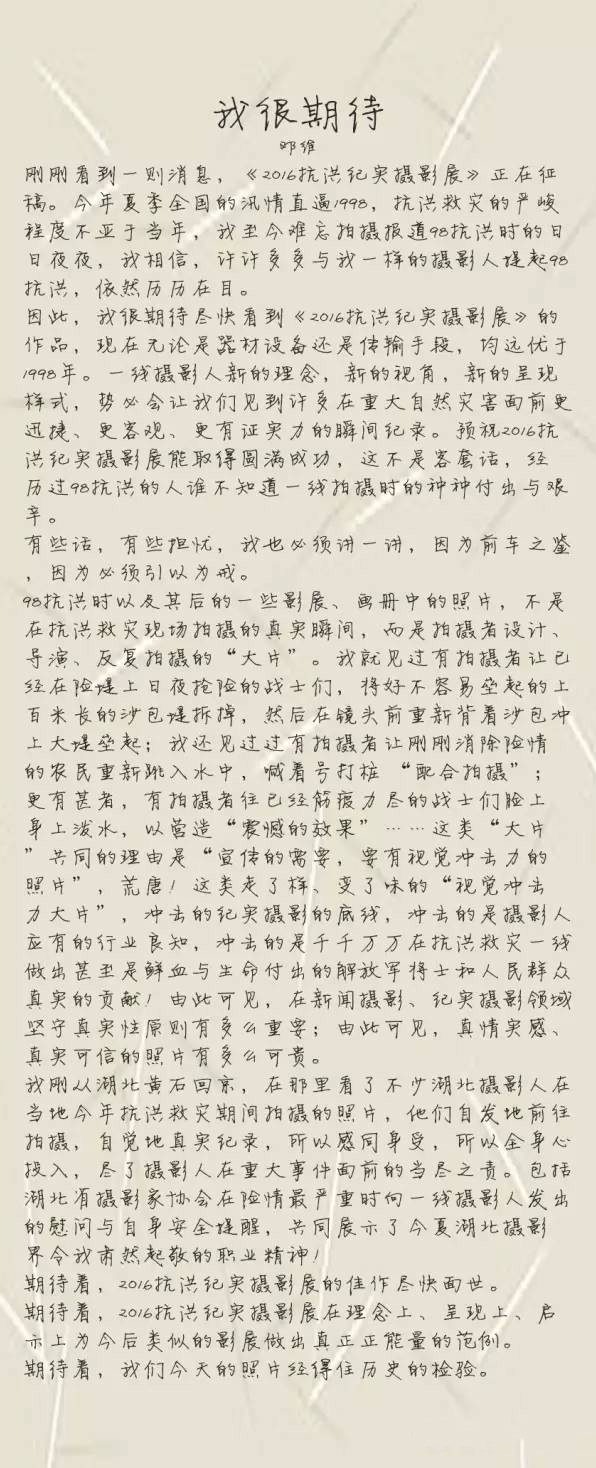 我很期待
邓维
刚刚看到一则消息，《2016抗洪纪实摄影展》正在征
稿。今年夏季全国的汛情直逼1998，抗洪救灾的严峻
程度不亚于当年，我至今难忘拍摄报道98抗洪时的日
日夜夜，我相信，许许多多与我一样的摄影人提起98
抗洪，依然历历在目。
因此，我很期待尽快看到《2016抗洪纪实摄影展》的
作品，现在无论是器材设备还是传输手段，均远优于
1998年。一线摄影人新的理念，新的视角，新的呈现
样式，势必会让我们见到许多在重大自然灾害面前更
迅捷、更客观、更有证实力的瞬间纪录。预祝2016抗
洪纪实摄影展能取得圆满成功，这不是客套话，经
历过98抗洪的人谁不知道一线拍摄时的种种付出与艰
辛。
有些话，有些担忧，我也必须讲一讲，因为前车之鉴
，因为必须引以为戒。
98抗洪时以及其后的一些影展、画册中的照片，不是
在抗洪救灾现场拍摄的真实瞬间，而是拍摄者设计、
导演、反复拍摄的“大片”。我就见过有拍摄者让已
经在险堤上日夜抢险的战士们，将好不容易垒起的上
百米长的沙包堤拆掉，然后在镜头前重新背着沙包冲
上大堤垒起；我还见过过有拍摄者让刚刚消除险情
的农民重新跳入水中，喊着号打桩 “配合拍摄”；
更有甚者，有拍摄者往已经筋疲力尽的战士们脸上
身上泼水，以营造“震憾的效果”……这类“大片
”共同的理由是“宣传的需要，要有视觉冲击力的
照片”，荒唐！这类走了样、变了味的“视觉冲击
力大片”，冲击的纪实摄影的底线，冲击的是摄影人
应有的行业良知，冲击的是千千万万在抗洪救灾一线
做出甚至是鲜血与生命付出的解放军将士和人民群众
真实的贡献！由此可见，在新闻摄影、纪实摄影领域
坚守真实性原则有多么重要；由此可见，真情实感、
真实可信的照片有多么可贵。
我刚从湖北黄石回京，在那里看了不少湖北摄影人在
当地今年抗洪救灾期间拍摄的照片，他们自发地前往
拍摄，自觉地真实纪录，所以感同身受，所以全身心
投入，尽了摄影人在重大事件面前的当尽之责。包括
湖北省摄影家协会在险情最严重时向一线摄影人发出
的慰问与自身安全提醒，共同展示了今夏湖北摄影
界令我肃然起敬的职业精神！
期待着，2016抗洪纪实摄影展的佳作尽快面世。
期待着，2016抗洪纪实摄影展在理念上、呈现上、启
示上为今后类似的影展做出真正正能量的范例。
期待着，我们今天的照片经得住历史的检验。